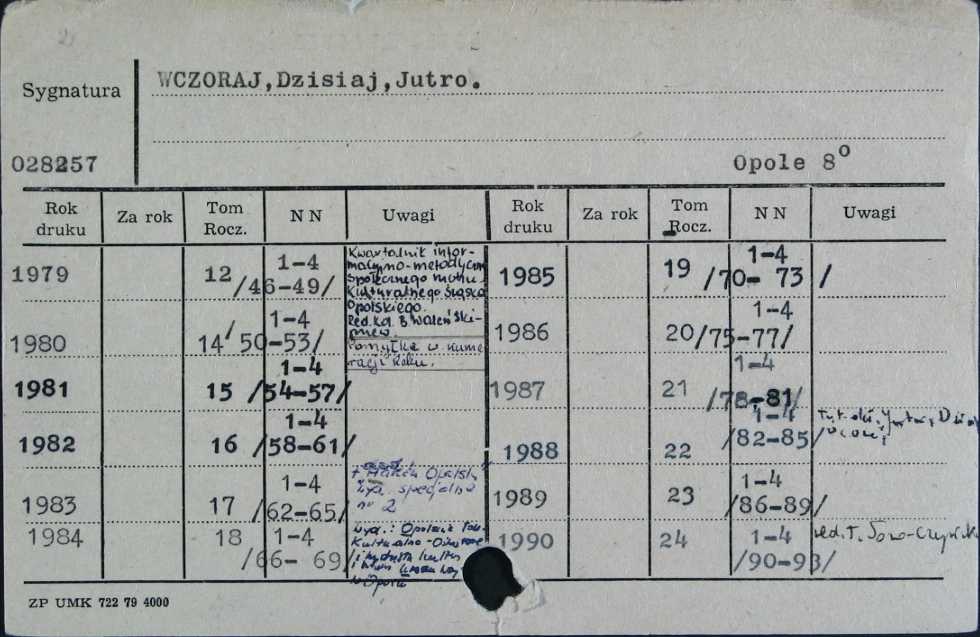 Sygnatura
WCZORAJ,Dzisiaj,Jutro.
028257
Opole 8°
Rok druku Za rok Tom Rocz. N N Uwagi Rok druku Za rok Tom Rocz. N N Uwagi
1979 12 1-4 /46-49/
Kwartalnik infor-
macyjno-metodyczny
Społecznego Ruchu
Kulturalnego Śląska
Opolskiego.
Red. Kol.
1985 19 1-4 /70- 73 /
1980 14 1-4 / 50-53/
Pomyłka w nume
racji roku.
1986 20 1-4 /75-77/
1981 15 1-4 /54-57/
1987 21 1-4 /78-81/
1982 16 1-4 /58-61/
1988 22 1-4 /82-85/
1983 17 1-4 /62-65/
nr 2
1989 23 1-4 /86-89/
1984 18 1-4 /66- 69/
Wyd.: Opolskie Tow.
Kulturalno-Oświatowe
w Opolu
1990 24 1-4 /90-93/
red. T.
ZP UMK 722 79 4000